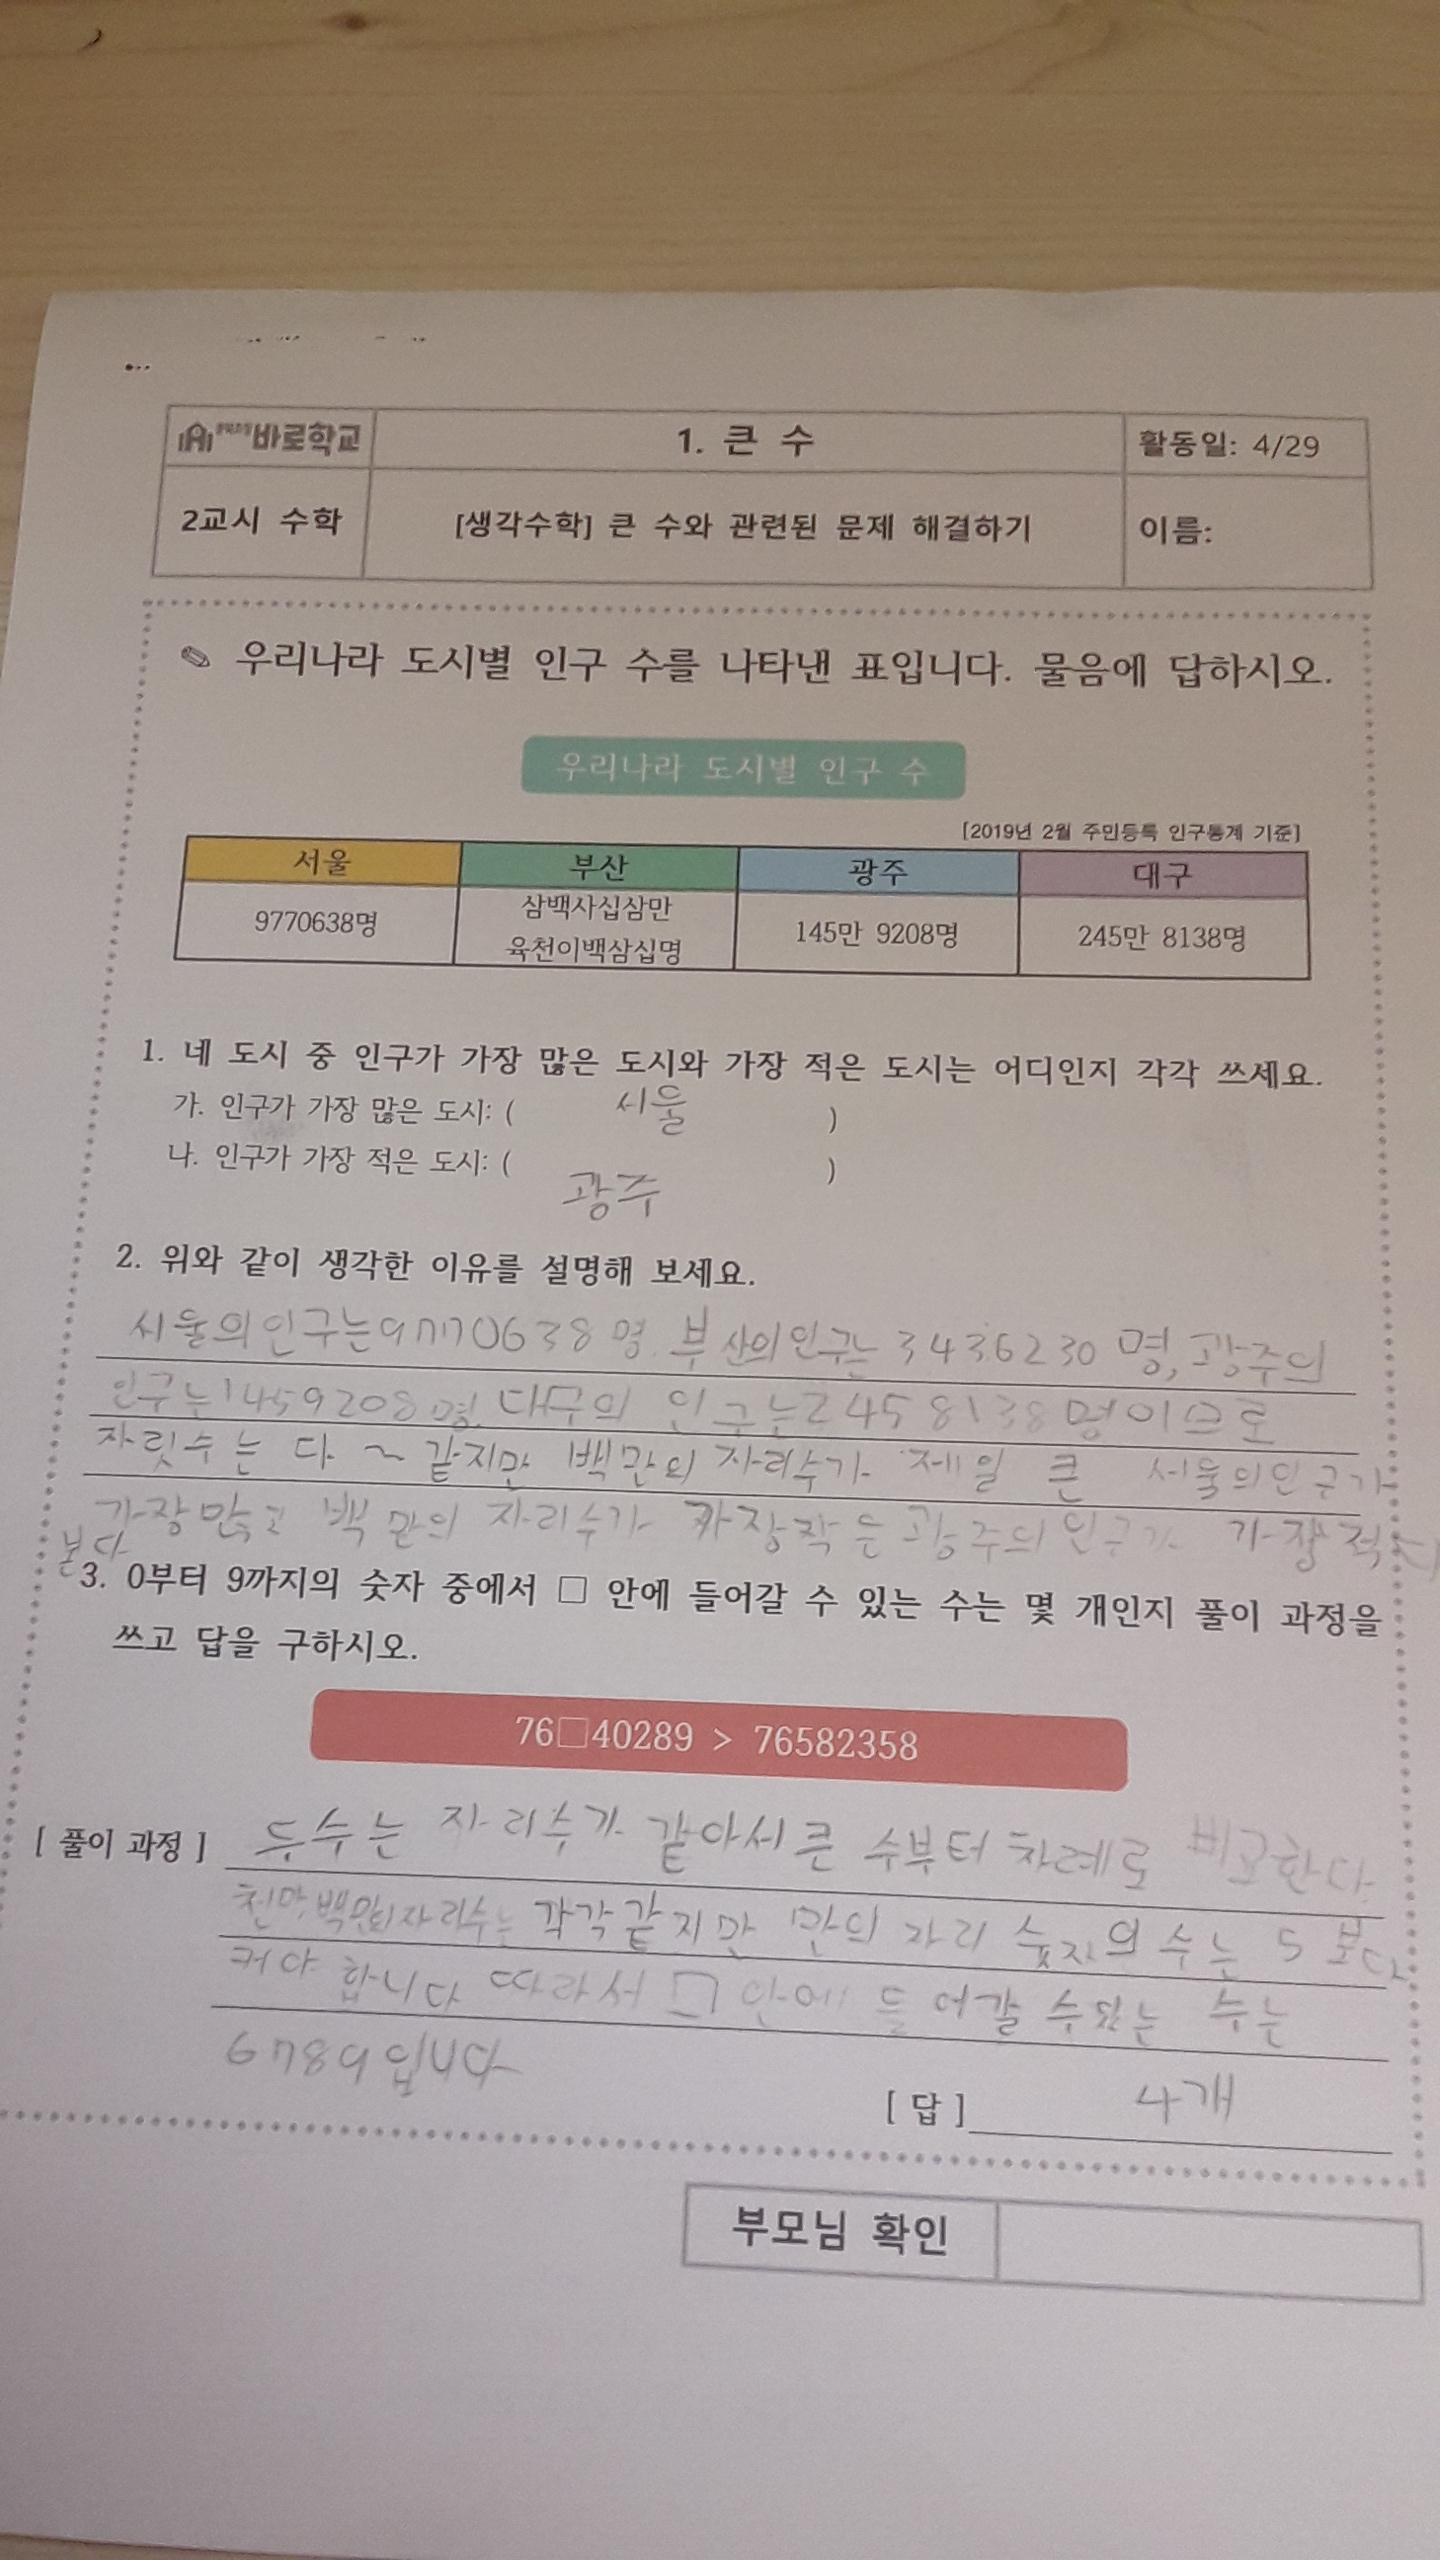 바로학교
1. 큰 수
활동일: 4/29
2교시 수학
[생각수학] 큰 수와 관련된 문제 해결하기
이름:
✎ 우리나라 도시별 인구 수를 나타낸 표입니다. 물음에 답하시오.
우리나라 도시별 인구 수
[2019년 2월 주민등록 인구통계 기준]
서울 부산 광주 대구
9770638명 삼백사십삼만 145만 9208명 245만 8138명
육천이백삼십명
1. 네 도시 중 인구가 가장 많은 도시와 가장 적은 도시는 어디인지 각각 쓰세요.
가. 인구가 가장 많은 도시: ( 서울 )
나. 인구가 가장 적은 도시: ( 광주 )
2. 위와 같이 생각한 이유를 설명해 보세요.
서울의 인구는 9770638명. 부산의 인구는 3436230명, 광주의
인구는 1459208명. 대구의 인구는 2458138명이므로
자릿수는 다 ~ 같지만 백만의 자리수가 제일 큰 서울의 인구가
가장 많고 백만의 자리수가 가장 작은 광주의 인구가 가장 적
본다
3. 0부터 9까지의 숫자 중에서 □ 안에 들어갈 수 있는 수는 몇 개인지 풀이 과정을
쓰고 답을 구하시오.
76□40289 > 76582358
[ 풀이 과정 ] 두수는 자리수가 같아서 큰 수부터 차례로 비교한다.
천만, 백만의 자리수는 각각 같지만 만의 자리 숫자의 수는 5 보다
커야 합니다 따라서 □ 안에 들어갈 수 있는 수는
6789입니다
[ 답 ] 4개
부모님 확인